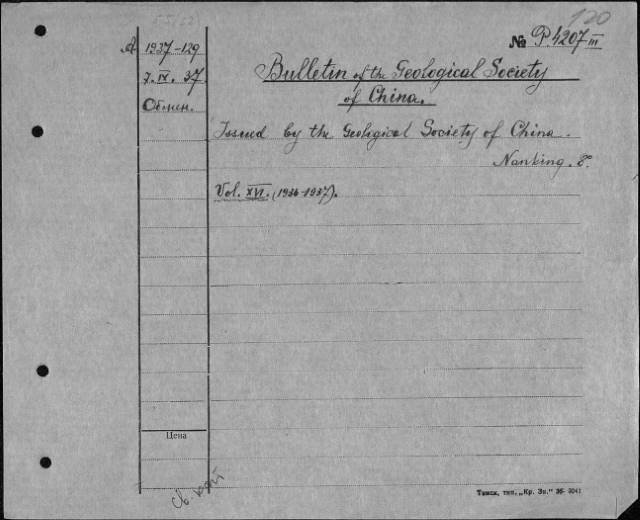 120
№ P.4207 III
A 1937-129
7.IX.37
Обмен.
Bulletin of the Geological Society
of China.
Issued by the Geological Society of China.
Nanking. 8°.
Vol. XVI. (1936-1937).
Цена
Томск, тип. „Кр. Зн." 36